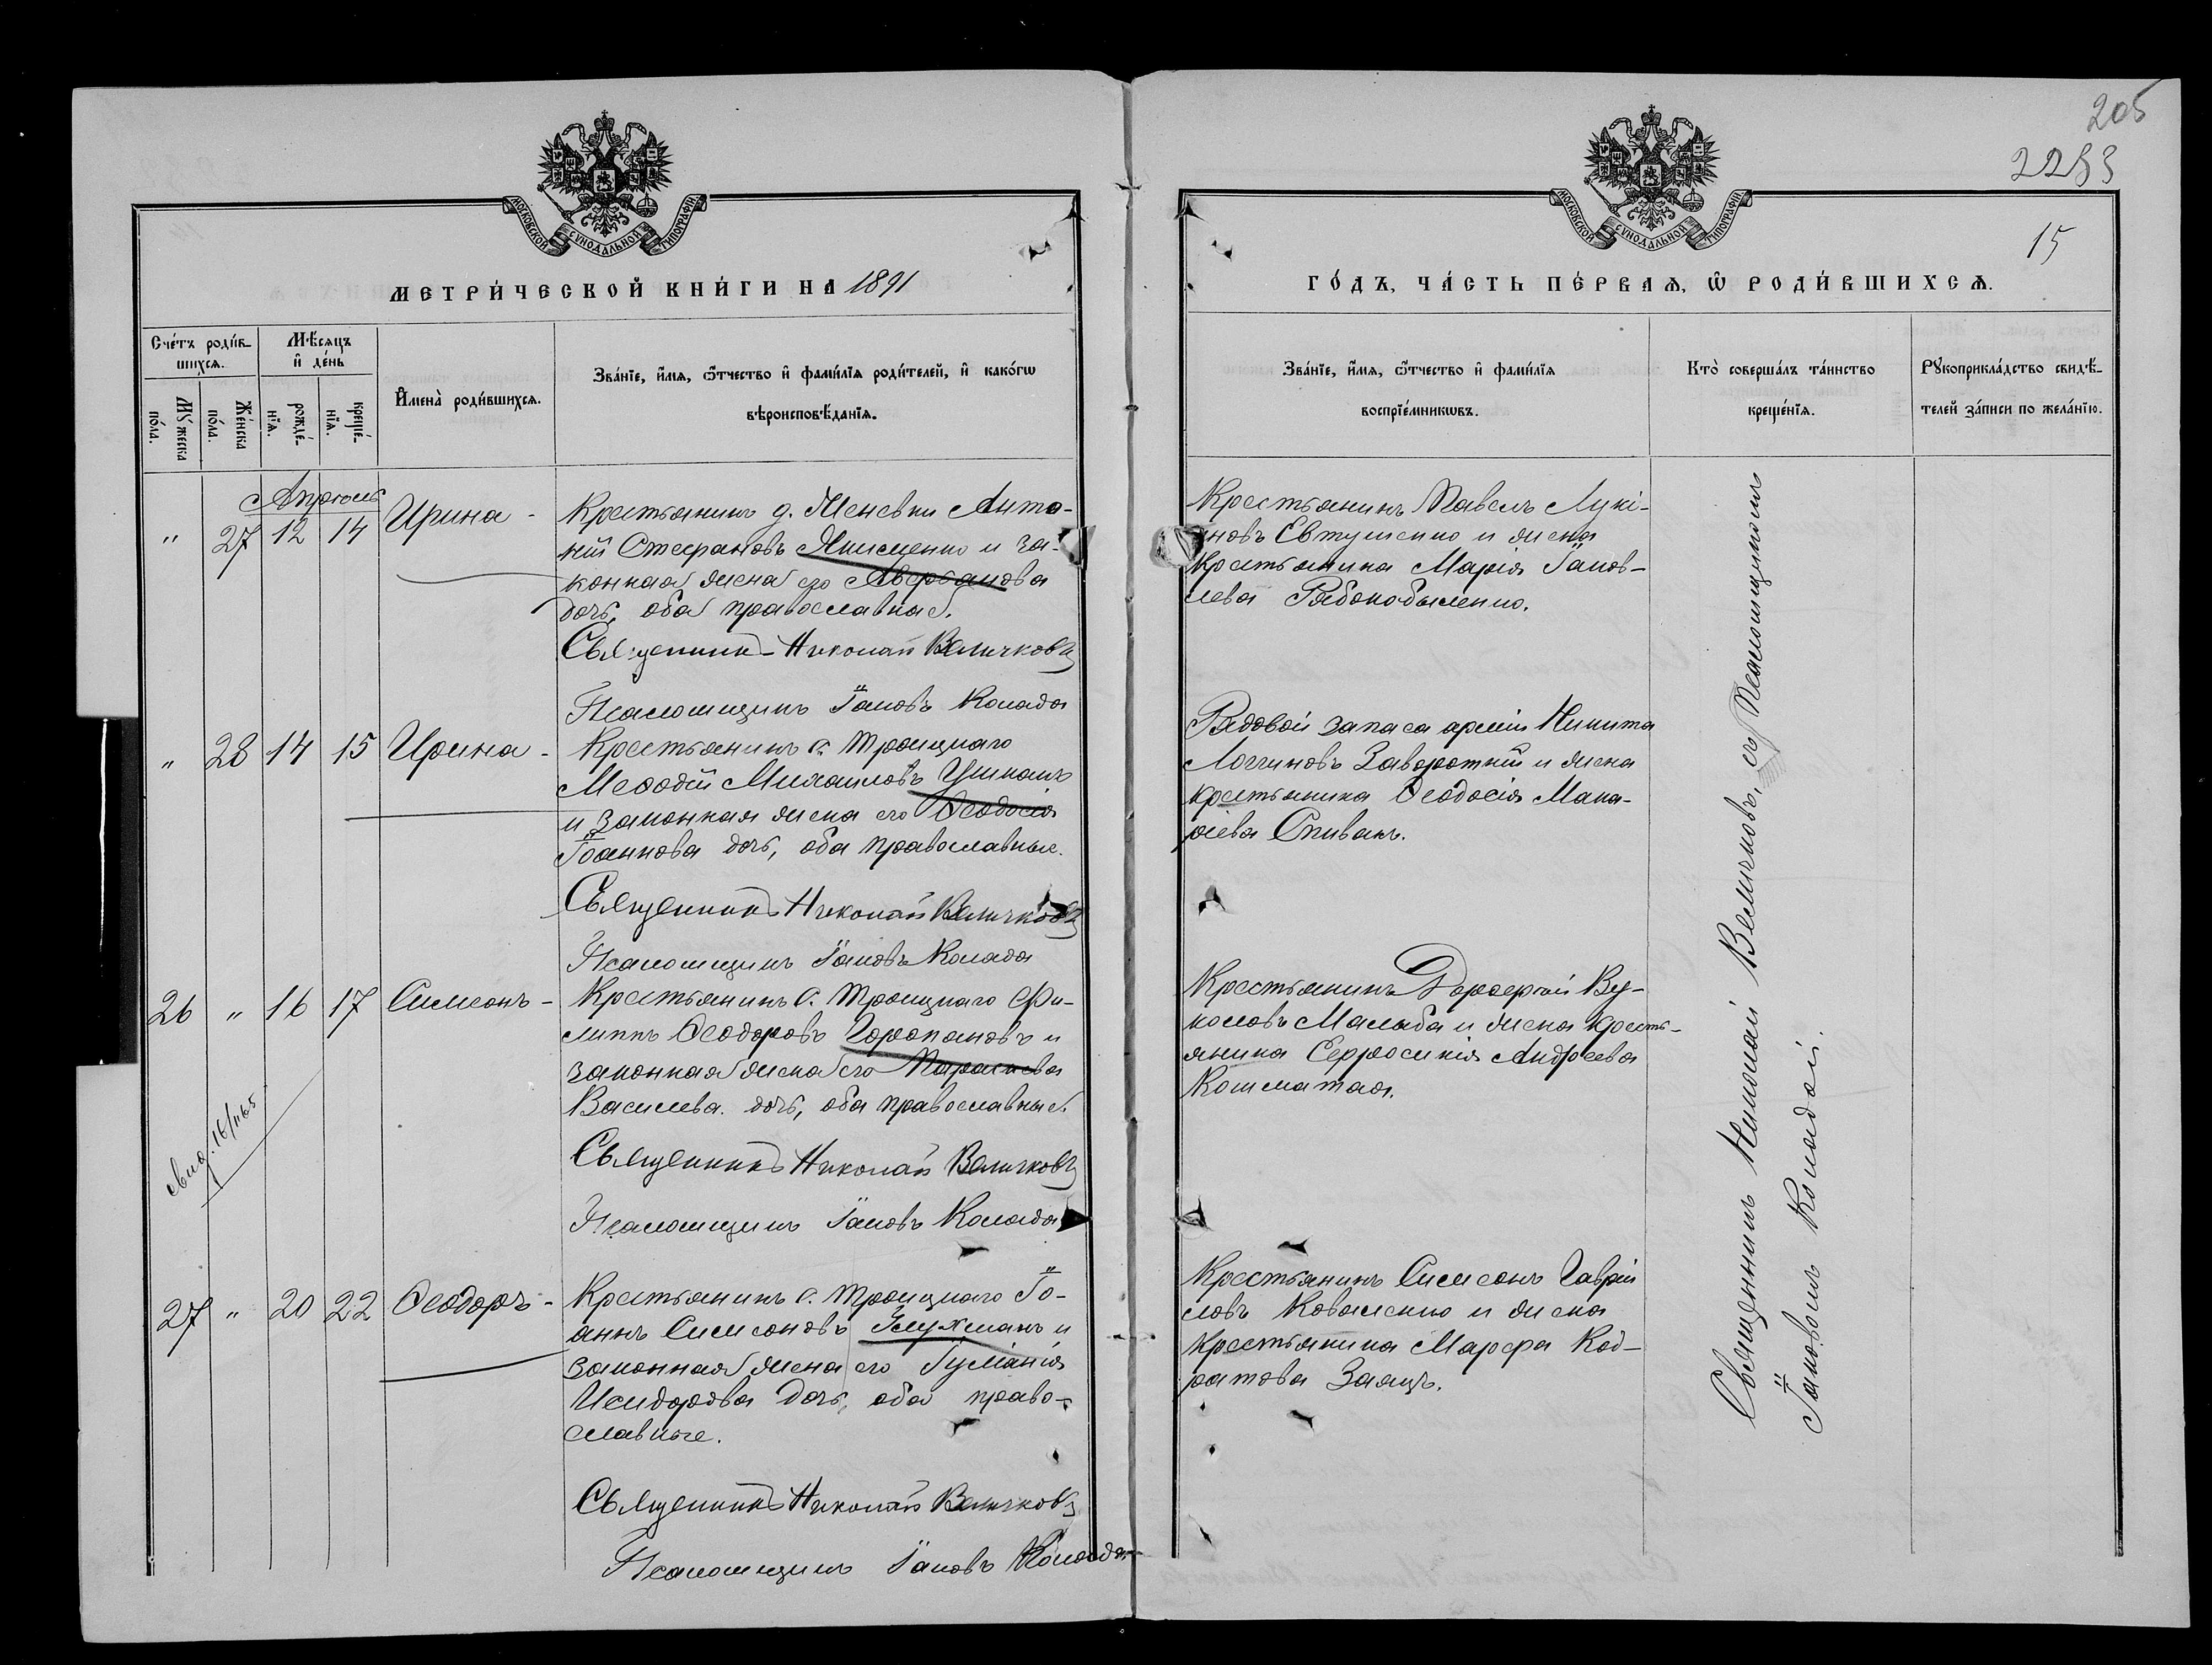 205
2283
15
МОСКОВСКОЙ СѴНОДАЛЬНОЙ ТИПОГРАФІИ
МЕТРИ́ЧЕСКОЙ КНИ́ГИ НА 1891
МОСКОВСКОЙ СѴНОДАЛЬНОЙ ТИПОГРАФІИ
ГО́ДЪ, ЧА́СТЬ ПЕ́РВАѦ, Ѡ҆ РОДИ́ВШИХСѦ.
Счётъ роди́в-
шихсѧ.
Мꙋ́жеска
по́ла.
Же́нска
по́ла.
Мѣ́сѧцъ
и҆ де́нь
рожде́-
нїѧ.
креще́-
нїѧ.
И҆мена̀ роди́вшихсѧ.
Зва́нїе, и҆́мѧ, ѻ҆́тчество и҆ фами́лїѧ роди́телей, и҆ како́гѡ
вѣроисповѣ́данїѧ.
Зва́нїе, и҆́мѧ, ѻ҆́тчество и҆ фами́лїѧ
воспрїе́мникѡвъ.
Кто̀ соверша́лъ та́инство
креще́нїѧ.
Рꙋкоприкла́дство свидѣ́-
телей за́писи по жела́нїю.
Апрѣль
" 27 12 14 Ирина -
Крестьянинъ д. Меневки Анто-
ній Стефановъ Яписценко и за-
конная жена его
дочь, оба православные.
Священникъ Николай Величковъ
Псаломщикъ Іаковъ Колада
Крестьянинъ Павелъ Лукі-
ановъ Евтушенко и жена
крестьянина Марія Іаков-
лева Рябокобыленко.
" 28 14 15 Ирина -
Крестьянинъ с. Троицкаго
Меѳодій Михаиловъ Ушкань
и законная жена его Ѳеодосія
Іоаннова дочь, оба православные.
Священникъ Николай Величковъ
Псаломщикъ Іаковъ Колада
Рядовой запаса арміи Никита
Логгиновъ Заворотній и жена
крестьянина Ѳеодосія Мака-
ріева Спивакъ.
26 " 16 17 Симеонъ -
Крестьянинъ с. Троицкаго Фи-
липпъ Ѳеодоровъ Горопановъ и
законная жена его Параскева
Василева дочь, оба православные.
Священникъ Николай Величковъ
Псаломщикъ Іаковъ Колада
свид. 16/1165
Крестьянинъ Дорофей Ву-
коловъ Малыба и жена кресть-
янина Евфросинія Андреева
Кошматая.
27 " 20 22 Ѳеодоръ -
Крестьянинъ с. Троицкаго Іо-
аннъ Симеоновъ Глухманъ и
законная жена его Іуліанія
Исидорова дочь, оба право-
славные.
Священникъ Николай Величковъ
Псаломщикъ Іаковъ Колада
Крестьянинъ Симеонъ Гаврiи
ловъ Коваленко и жена
крестьянина Марфа Код-
ратова Заяцъ.
Священникъ Николай Величковъ, съ Псаломщикомъ
Іаковомъ Коладой.